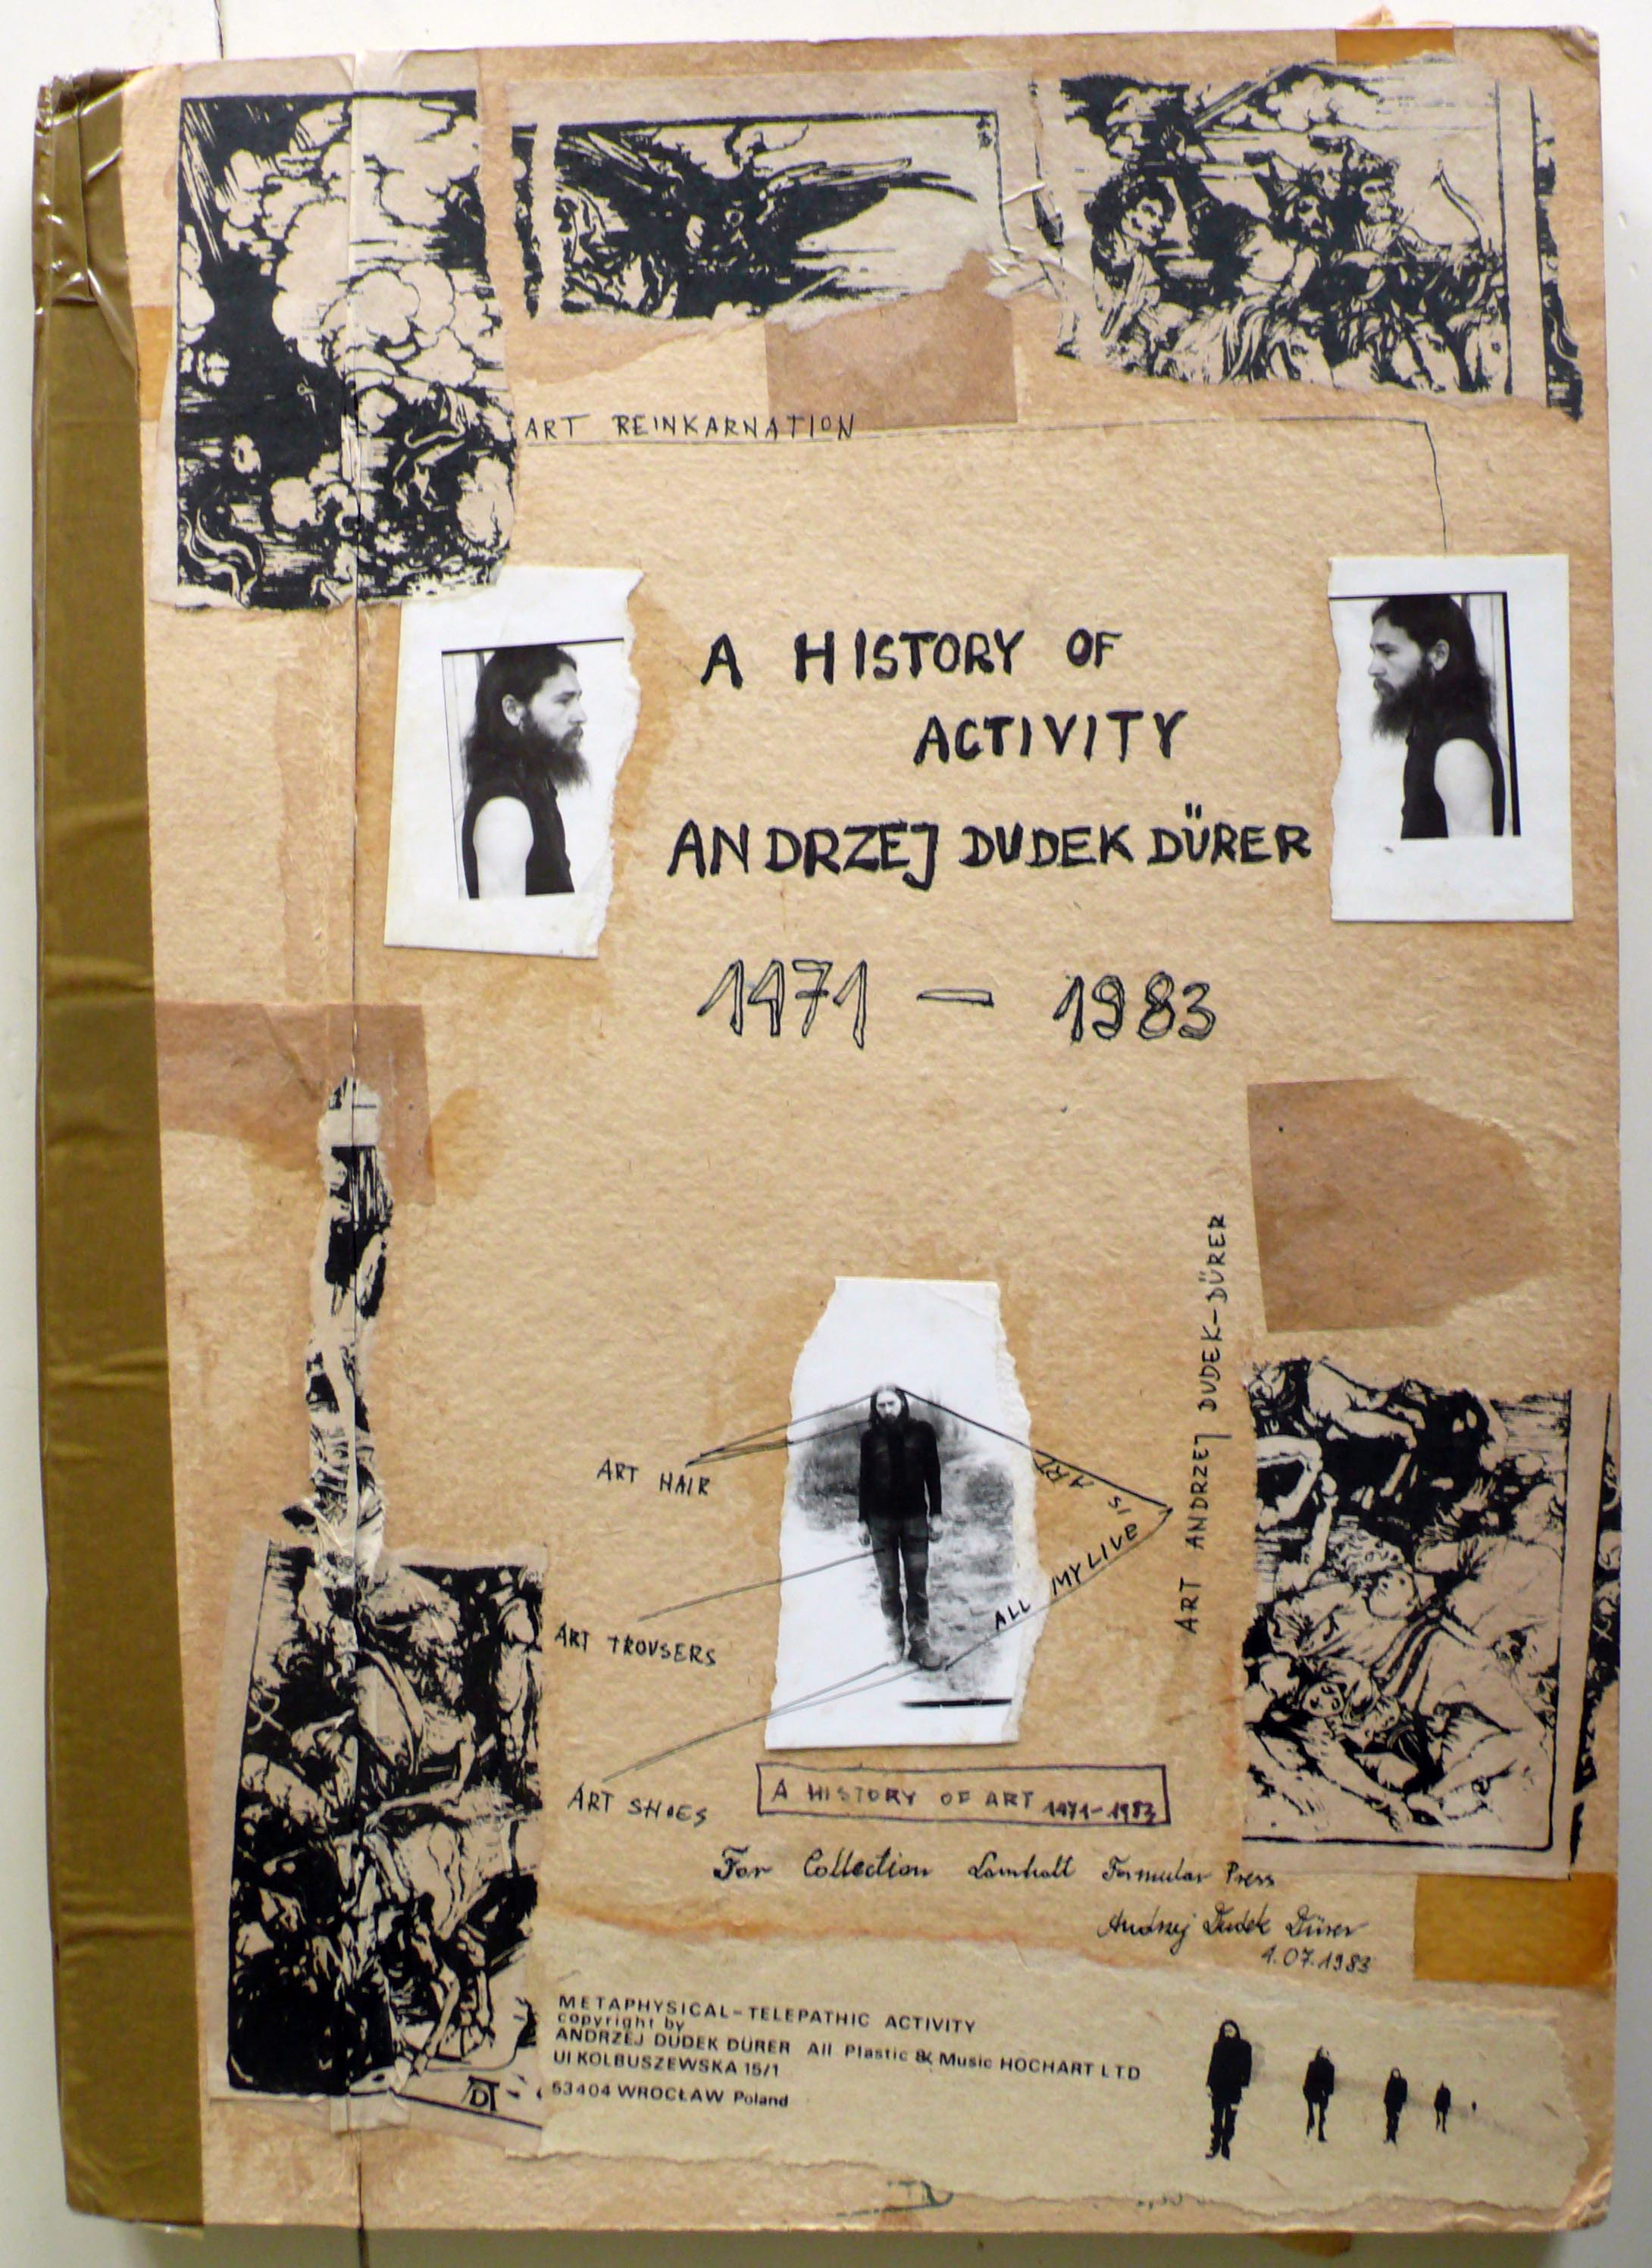 ART REINKARNATION
A HISTORY OF
ACTIVITY
ANDRZEJ DUDEK DÜRER
1471 — 1983
ART ANDRZEJ DUDEK-DÜRER
ART HAIR
ART IS
ALL MY LIVE
ART TROUSERS
ART SHOES
A HISTORY OF ART 1471-1983
For Collection Lomholt Formular Press
Andrzej Dudek Dürer
1.07.1983
METAPHYSICAL-TELEPATHIC ACTIVITY
copyright by
ANDRZEJ DUDEK DÜRER All Plastic & Music HOCHART LTD
Ul KOLBUSZEWSKA 15/1
53404 WROCŁAW Poland
AD